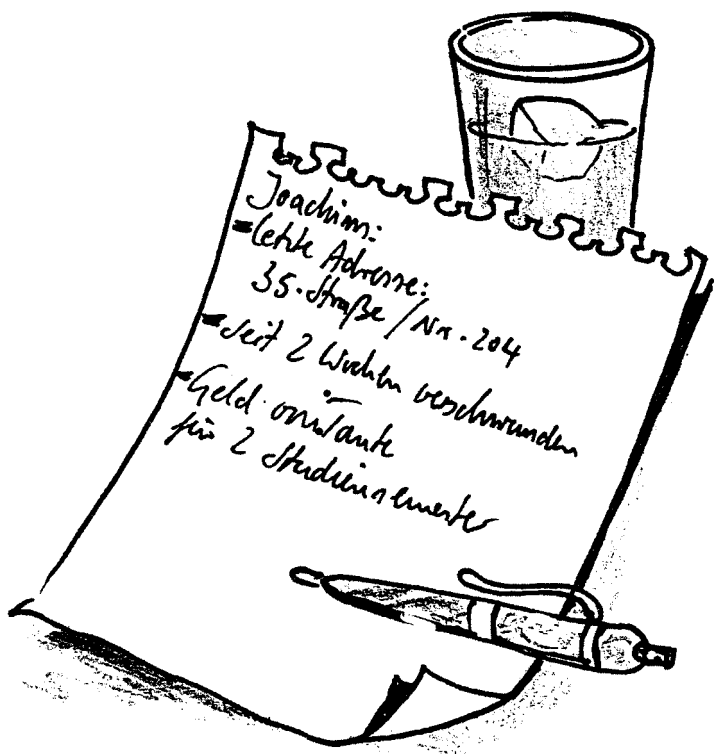 Joachim:
- letzte Adresse:
35. Straße / Nr. 204
- seit 2 Wochen verschwunden
- Geld von Tante
für 2 Studiensemester